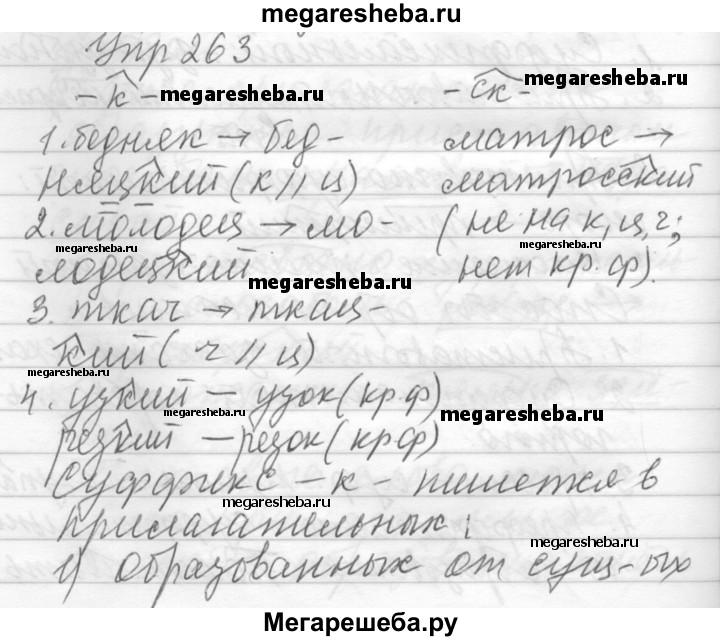 megaresheba.ru
Упр 263
- к - megaresheba.ru - ск - megaresheba.ru
1. бедняк → бед- матрос →
няцкий (к // ц) матросский
2. молодец → мо- ( не на к, ц, ч;
megaresheba.ru megaresheba.ru
лодецкий megaresheba.ru нет кр. ф).
3. ткач → ткац-
кий ( ч // ц)
megaresheba.ru
4. узкий — узок (кр. ф)
megaresheba.ru megaresheba.ru
резкий — резок (кр. ф)
Суффикс - к - пишется в
megaresheba.ru
прилагательных:
megaresheba.ru
1) образованных от сущ-ых
Мегарешеба.ру